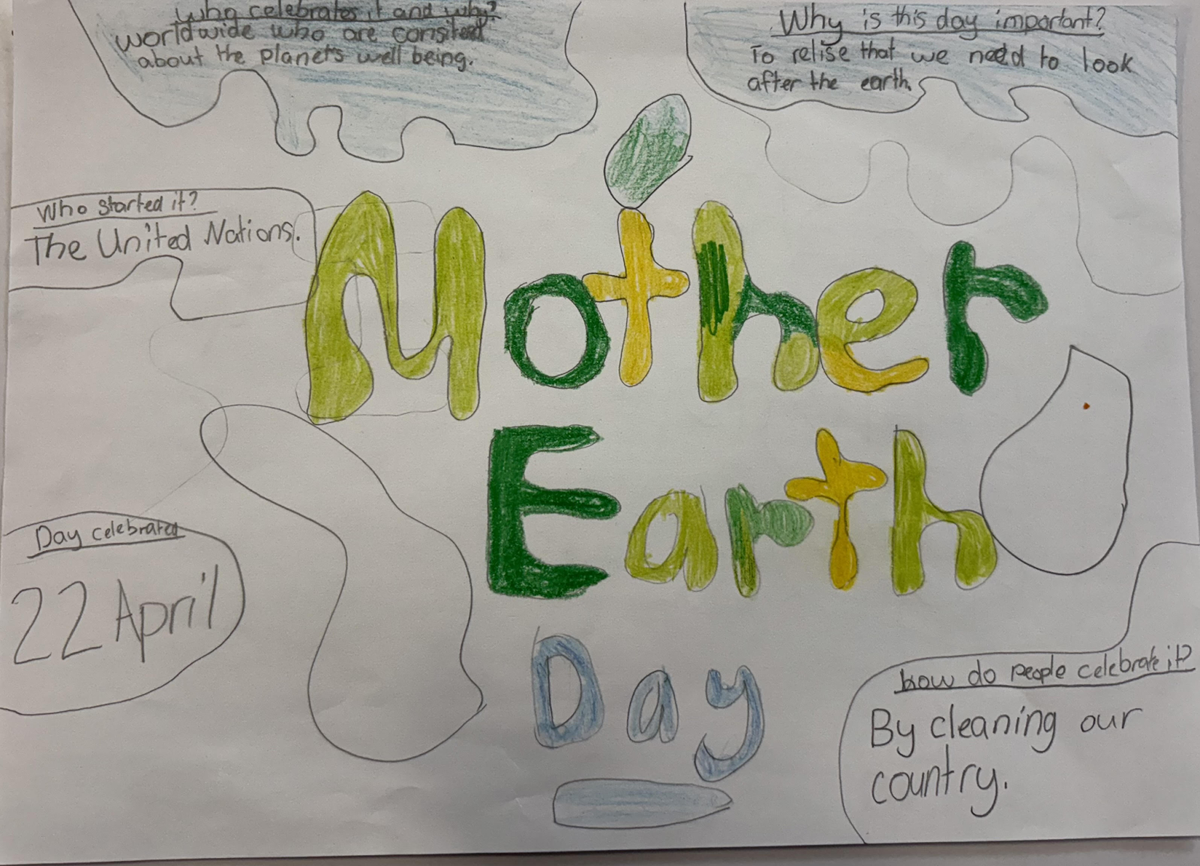 Who celebrates it and why?
worldwide who are
about the planet's well being.
Why is this day important?
To relise that we need to look
after the earth.
Who started it?
The United Nations.
Mother
Earth
Day
Day celebrated
22 April
how do people celebrate it?
By cleaning our
country.